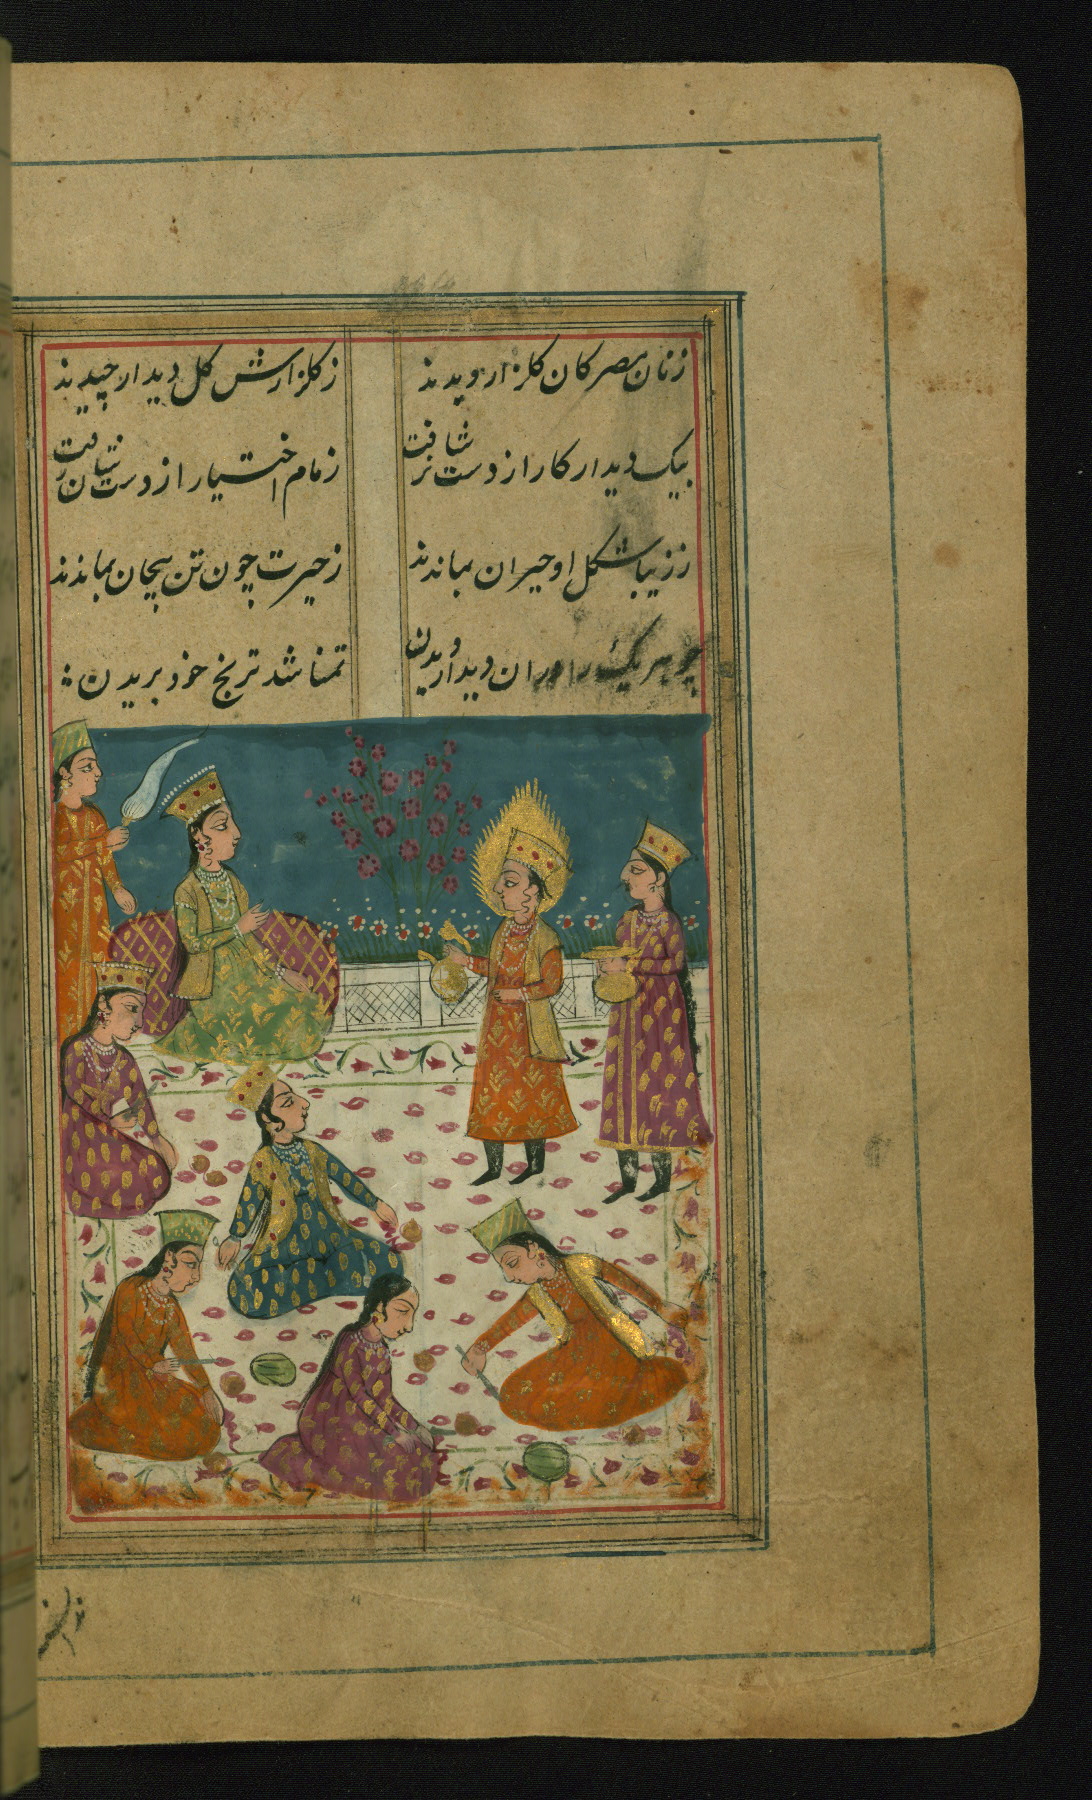 زنان مصر کان گلزار دیدند
ز گلزارش گل دیدار چیدند
بیک دیدار کار از دست شان رفت
زمام اختیار از دست شان رفت
ز زیبا شکل او حیران بماندند
ز حیرت چون تن بیجان بماندند
چو هر یک را دران دیدار دیدن
تمنا شد ترنج خود بریدن